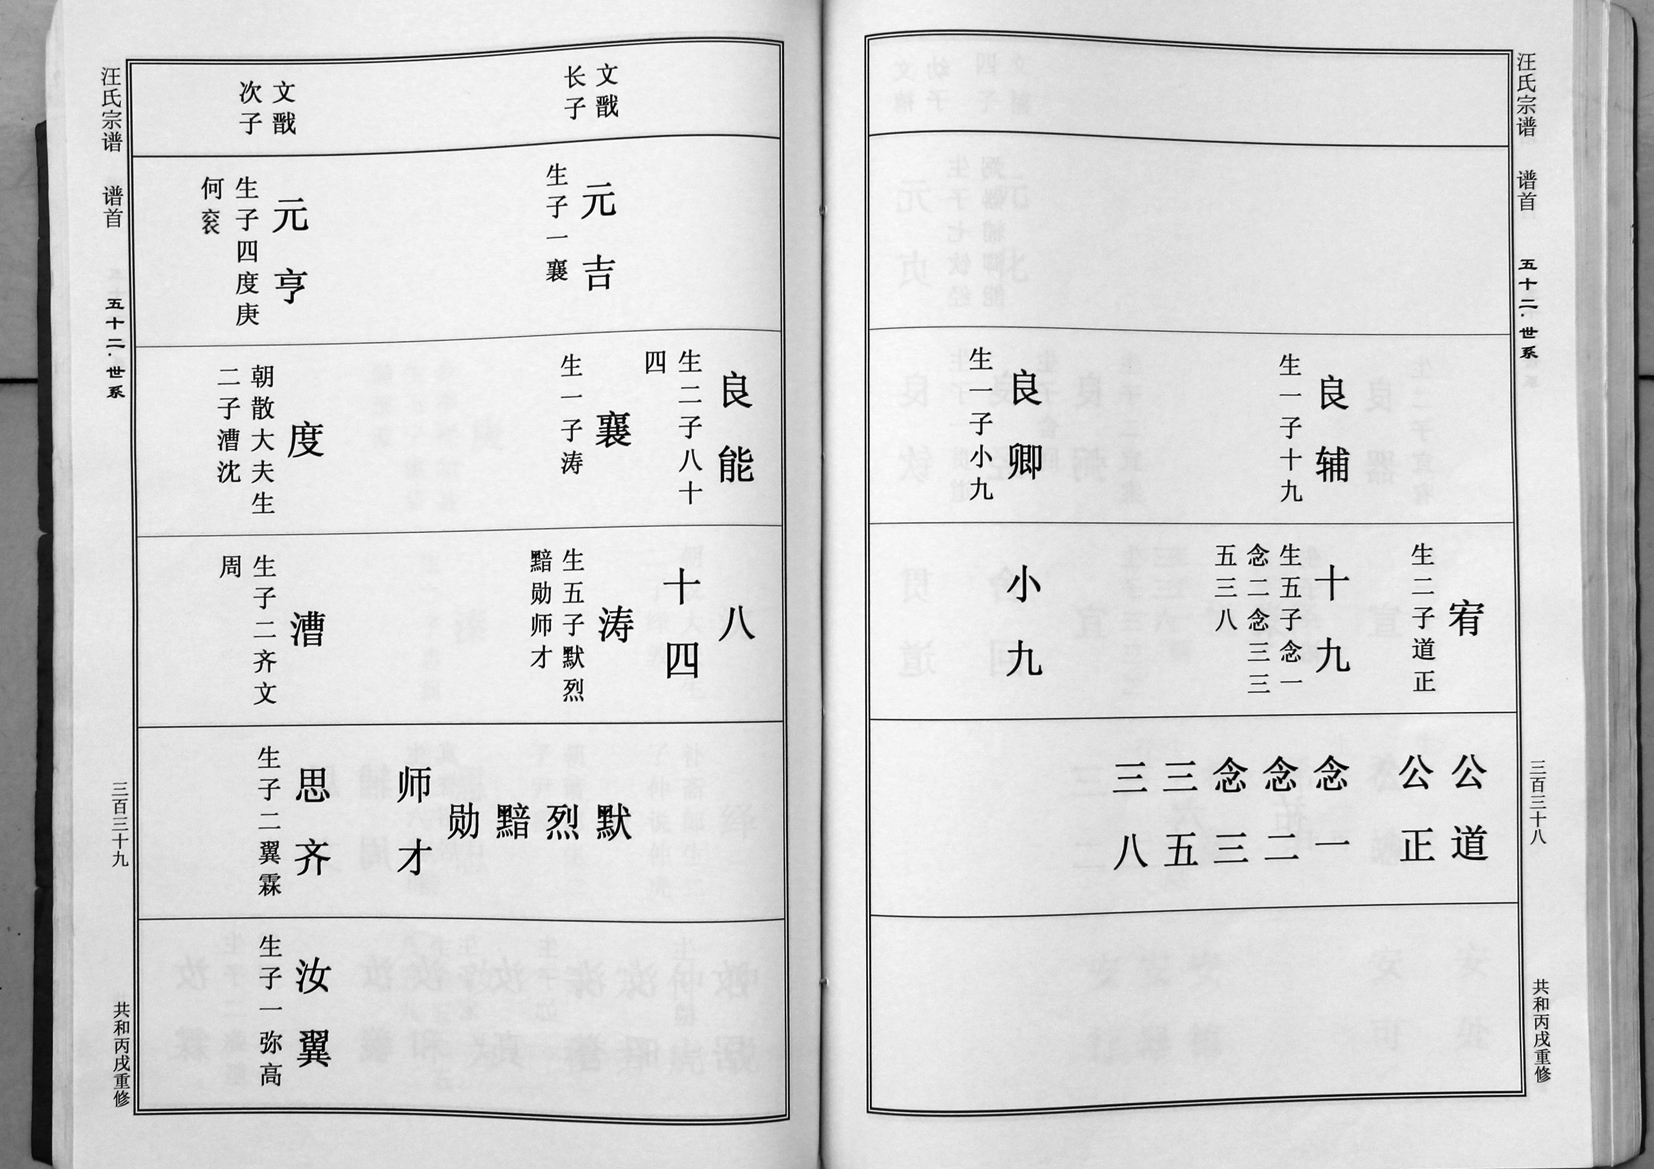 汪氏宗谱 谱首 五十二·世系 三百三十八 共和丙戌重修
良辅
生一子十九
良卿
生一子小九
宥
生二子道正
十九
生五子念一
念二念三三
五三八
小九
公道
公正
念一
念二
念三
三五
三八
文戬
长子
文戬
次子
元吉
生子一襄
元亨
生子四度庚
何衮
良能
生二子八十
四
襄
生一子涛
度
朝散大夫生
二子漕沈
八
十四
涛
生五子默烈
黯勋师才
漕
生子二齐文
周
默
烈
黯
勋
师才
思齐
生子二翼霖
汝翼
生子一弥高
汪氏宗谱 谱首 五十二·世系 三百三十九 共和丙戌重修